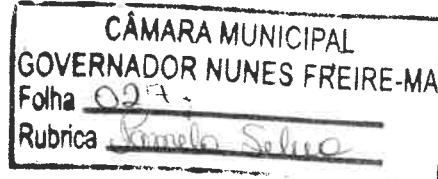 CÂMARA MUNICIPAL
GOVERNADOR NUNES FREIRE-MA
Folha 027.
Rubrica Pamela Silva